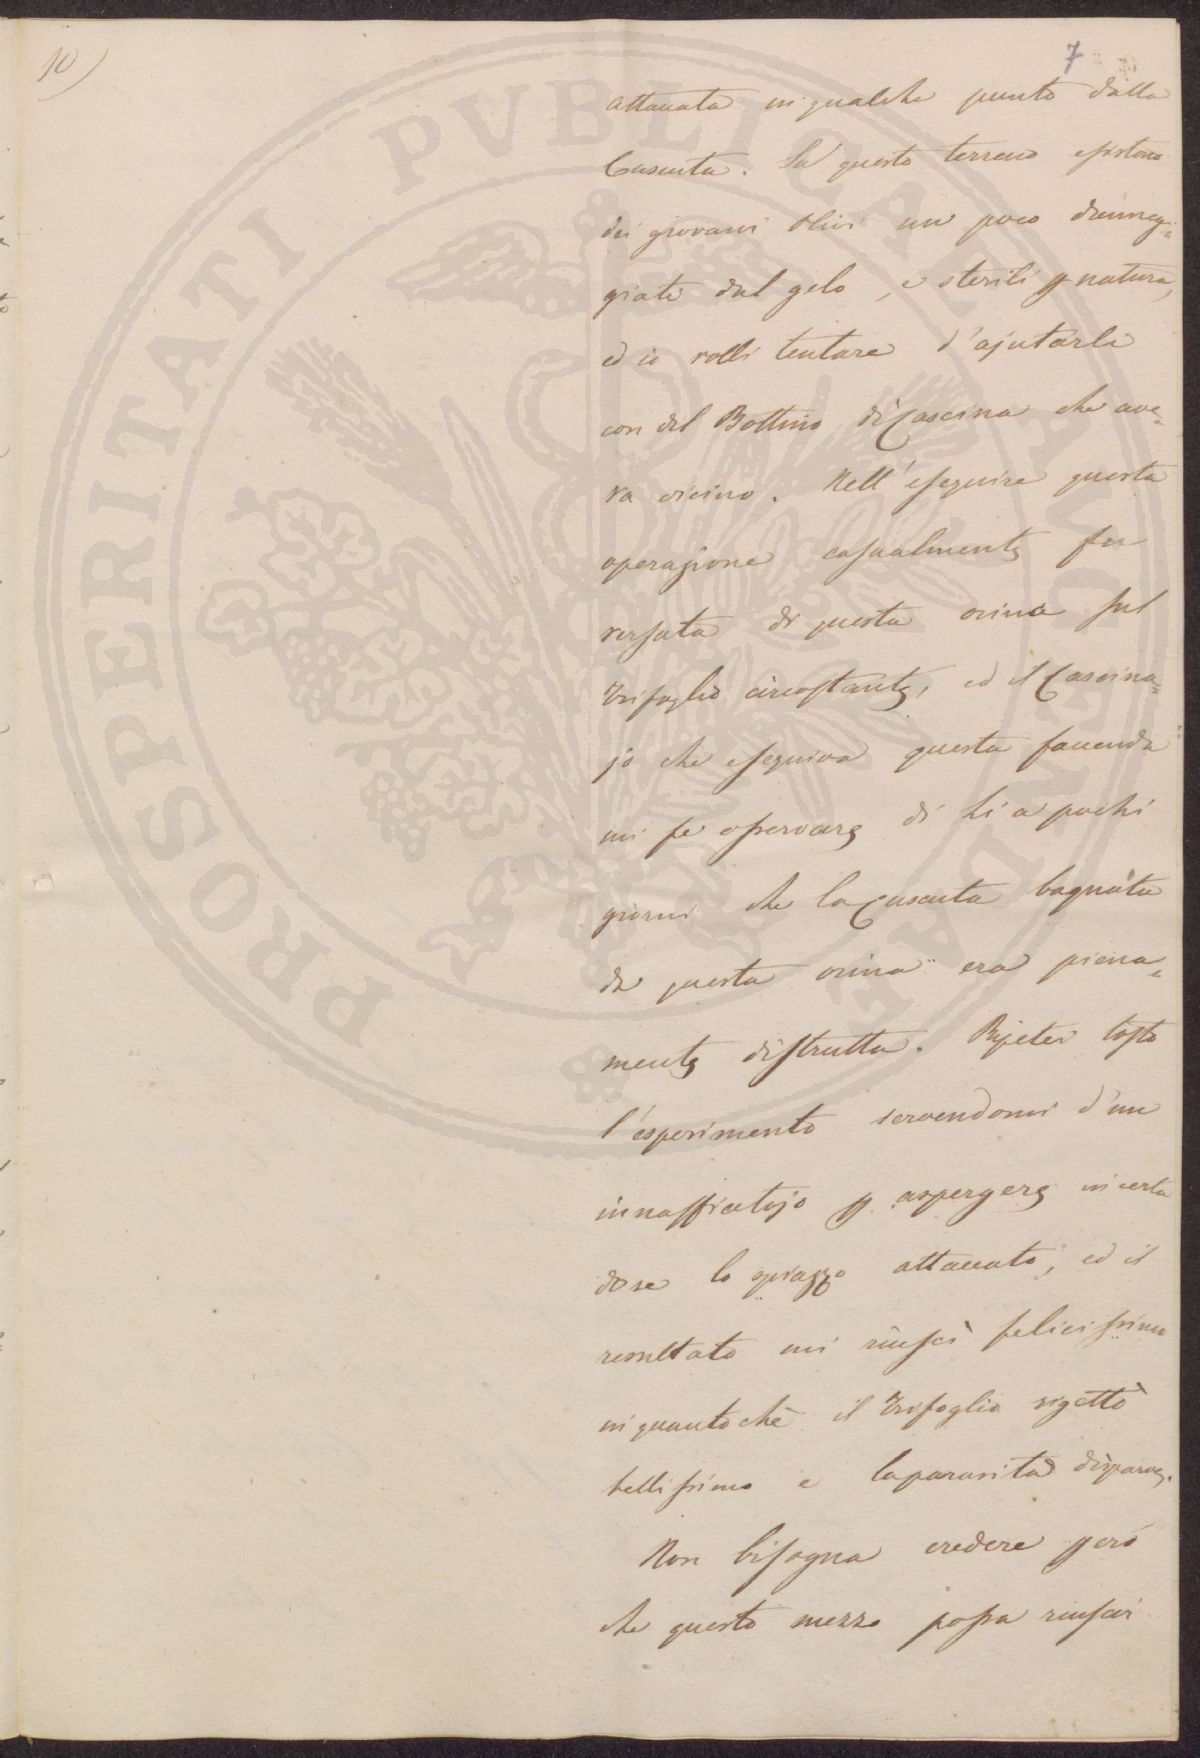 10)
7
attaccata in qualche punto dalla
Cuscuta. Su questo terreno esistono
dei giovani Olivi un poco danneg=
giati dal gelo, e sterili p natura,
ed io volli tentare d'ajutarli
con del Bottino di Cascina che ave=
va vicino. Nell'eseguire questa
operazione casualmente fu
versata di questa orina sul
Trifoglio circostante, ed il Cascina=
jo che eseguiva questa faccenda
mi fe osservare di li a pochi
giorni che la Cuscuta bagnata
da questa orina era piena=
mente distrutta. Ripetei tosto
l'esperimento servendomi d'un
innaffiatojo p aspergere in certa
dose lo spiazzo attaccato, ed il
resultato mi riuscì felicissimo
in quantochè il Trifoglio rigettò
bellissimo e la parasita disparve.
Non bisogna credere però
che questo mezzo possa riuscir
PROSPERITATI PVBLICAE AVGENDAE